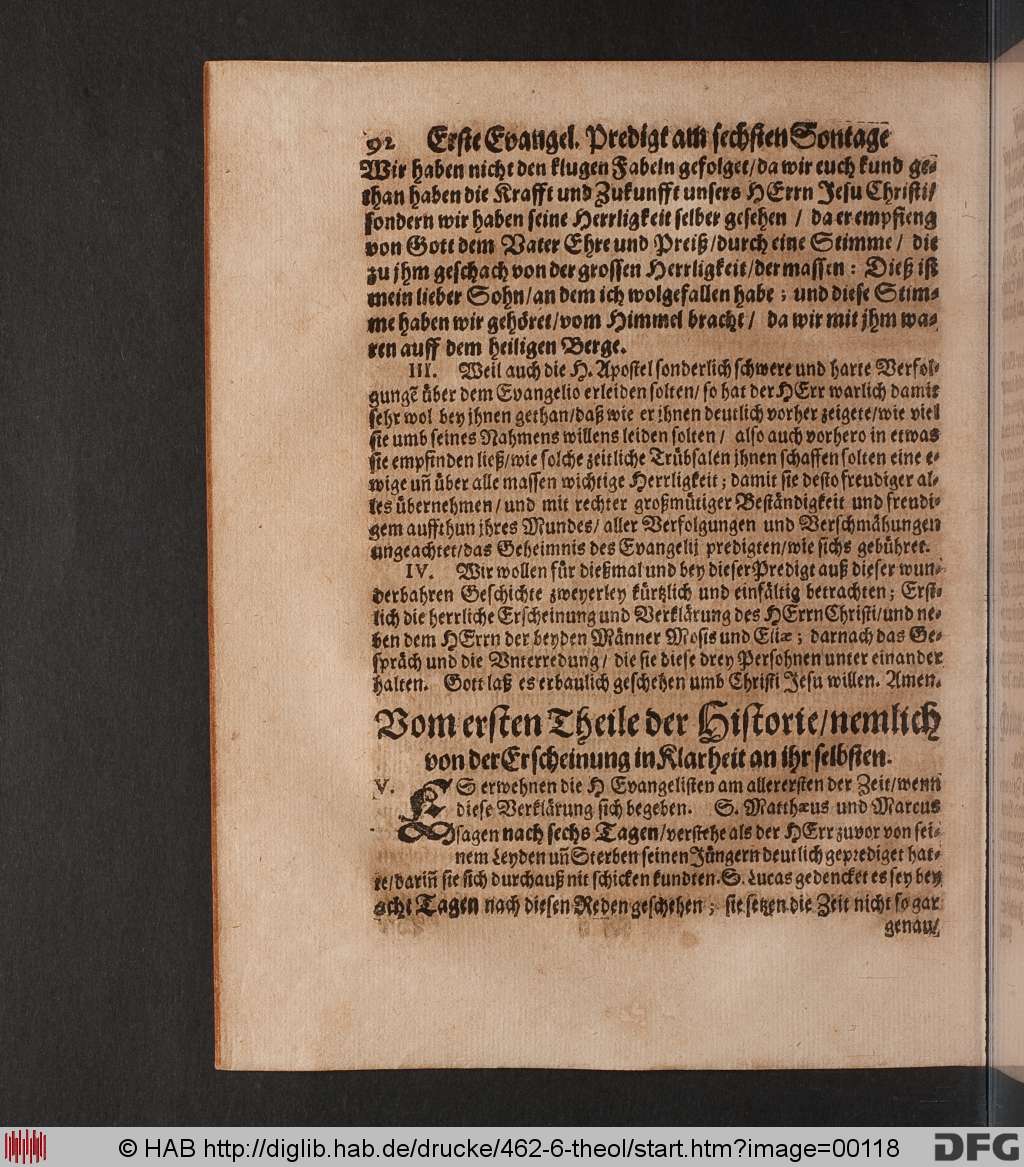 92 Erste Evangel. Predigt am sechsten Sontage
Wir haben nicht den klugen Fabeln gefolget/da wir euch kund ge-
than haben die Krafft und Zukunfft unsers HErrn Jesu Christi/
sondern wir haben seine Herrligkeit selber gesehen / da er empfieng
von Gott dem Vater Ehre und Preiß/durch eine Stimme / die
zu jhm geschach von der grossen Herrligkeit/dermassen: Dieß ist
mein lieber Sohn/an dem ich wolgefallen habe; und diese Stim-
me haben wir gehöret/vom Himmel bracht / da wir mit jhm wa-
ren auff dem heiligen Berge.
III. Weil auch die H. Apostel sonderlich schwere und harte Verfol-
gungē über dem Evangelio erleiden solten/ so hat der HErr warlich damit
sehr wol bey jhnen gethan/daß wie er jhnen deutlich vorher zeigete/wie viel
sie umb seines Nahmens willens leiden solten / also auch vorhero in etwas
sie empfinden ließ/wie solche zeitliche Trübsalen jhnen schaffen solten eine e-
wige uñ über alle massen wichtige Herrligkeit; damit sie desto freudiger al-
les übernehmen/und mit rechter großmütiger Beständigkeit und freudi-
gem auffthun jhres Mundes/ aller Verfolgungen und Verschmähungen
ungeachtet/das Geheimnis des Evangelij predigten/wie sichs gebühret.
IV. Wir wollen für dießmal und bey dieser Predigt auß dieser wun-
derbahren Geschichte zweyerley kürtzlich und einfältig betrachten; Erst-
lich die herrliche Erscheinung und Verklärung des HErrn Christi/und ne-
ben dem HErrn der beyden Männer Mosis und Eliæ; darnach das Ge-
spräch und die Vnterredung/ die sie diese drey Persohnen unter einander
halten. Gott laß es erbaulich geschehen umb Christi Jesu willen. Amen.
Vom ersten Theile der Historie/nemlich
von der Erscheinung in Klarheit an ihr selbsten.
V. ES erwehnen die H Evangelisten am allerersten der Zeit/wenn
diese Verklärung sich begeben. S. Matthæus und Marcus
sagen nach sechs Tagen/verstehe als der HErr zuvor von sei-
nem Leyden uñ Sterben seinen Jüngern deutlich geprediget hat-
te/dariñ sie sich durchauß nit schicken kundten. S. Lucas gedencket es sey bey
acht Tagen nach diesen Reden geschehen; sie setzen die Zeit nicht so gar
genau/
© HAB http://diglib.hab.de/drucke/462-6-theol/start.htm?image=00118
DFG